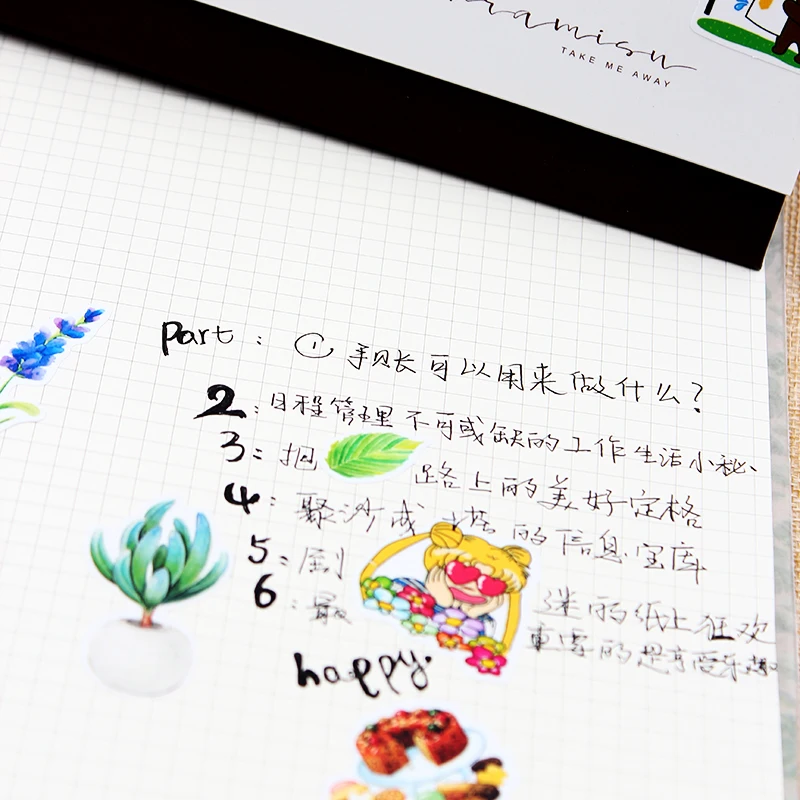 TAKE ME AWAY
Part: ① 手账长可以用来做什么?
2: 日程管理不可或缺的工作生活小秘、
3: 把 路上的美好定格
4: 聚沙成塔的信息宝库
5: 迷的纸上狂欢
6: 最 重要的是享受乐趣
happy.